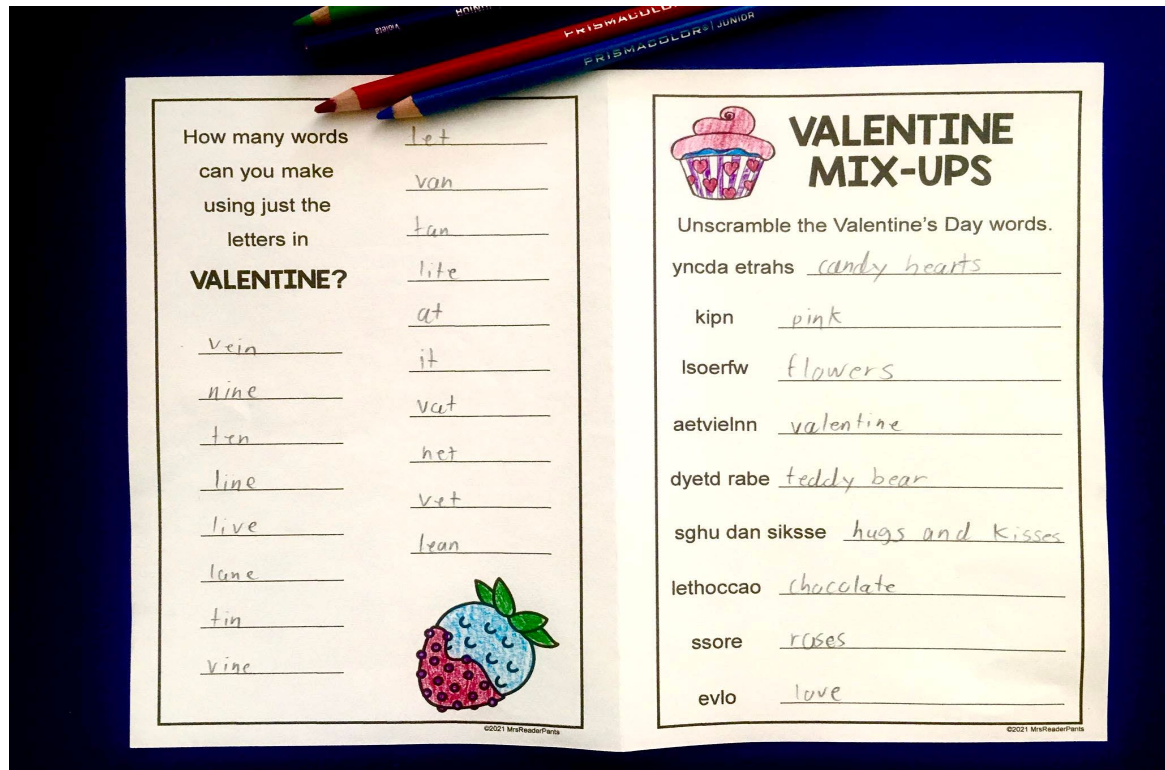 HOLBEIN
Violeta
PRISMACOLOR
PRISMACOLOR® | JUNIOR
How many words
can you make
using just the
letters in
VALENTINE?
vein
nine
ten
line
live
lane
tin
vine
let
van
tan
lite
at
it
vat
net
vet
lean
©2021 MrsReaderPants
VALENTINE
MIX-UPS
Unscramble the Valentine's Day words.
yncda etrahs candy hearts
kipn pink
lsoerfw flowers
aetvielnn valentine
dyetd rabe teddy bear
sghu dan siksse hugs and kisses
lethoccao chocolate
ssore roses
evlo love
©2021 MrsReaderPants